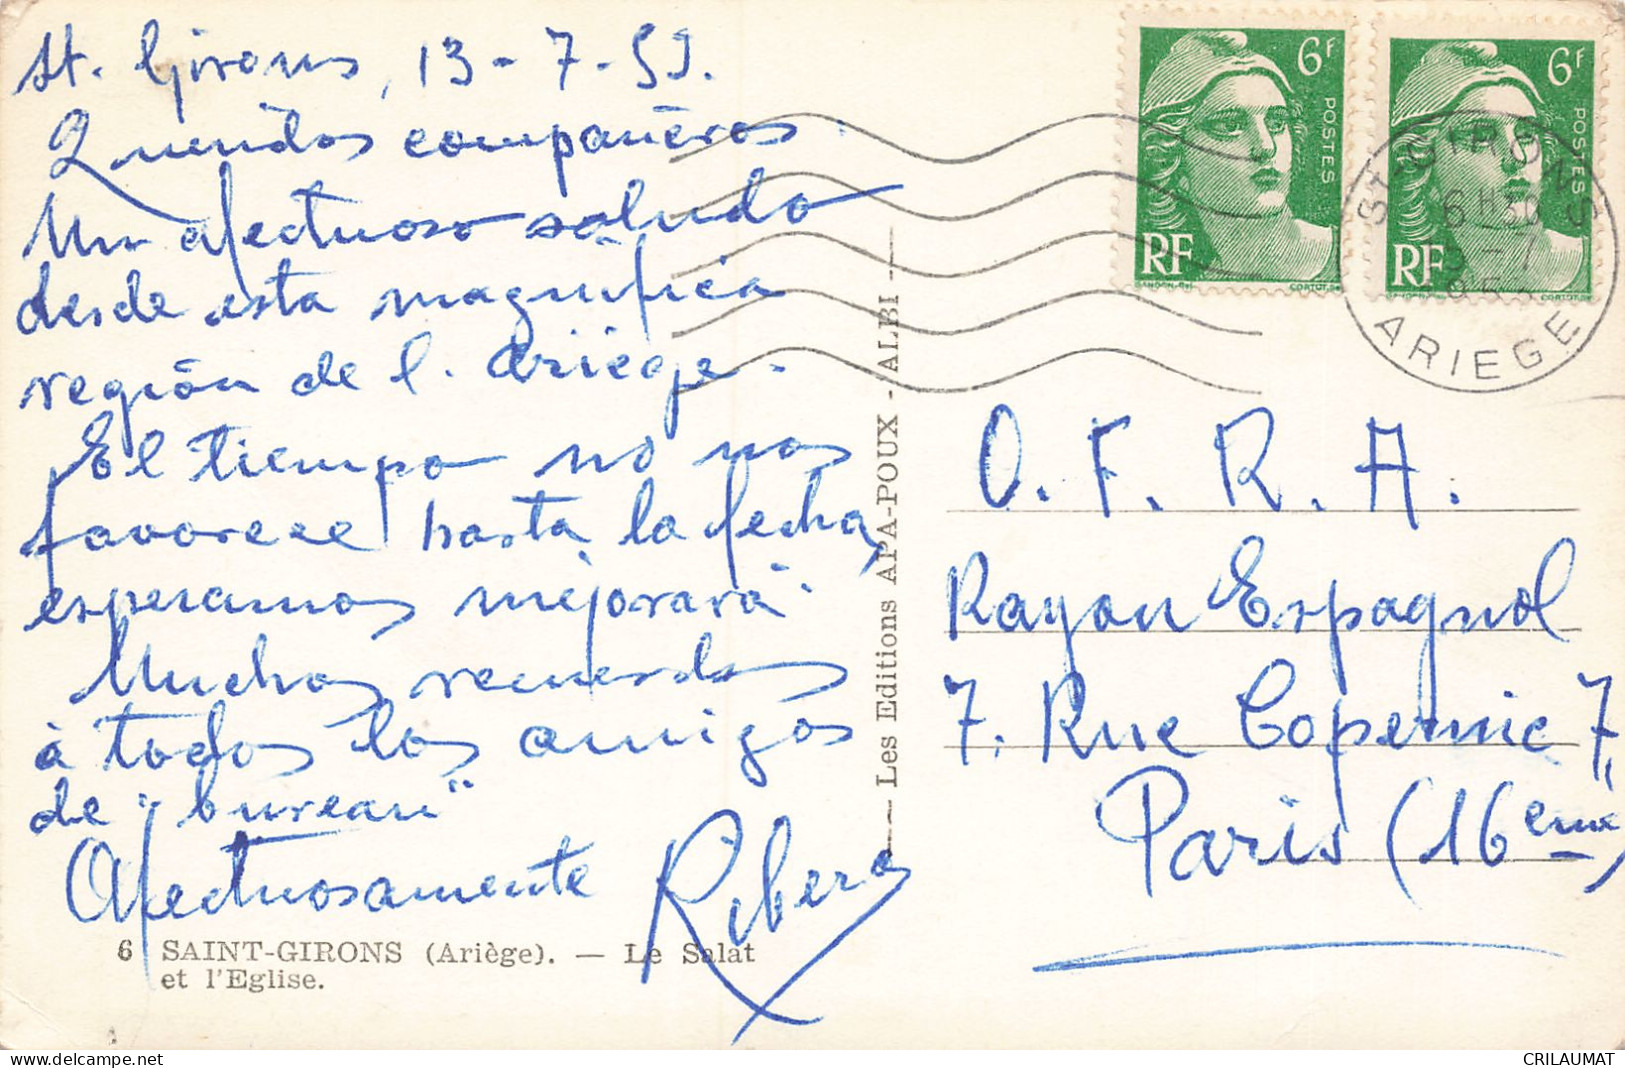 St. Girons, 13-7-53.
Queridos compañeros.
Un afectuoso saludo
desde esta magnifica
región de l. Ariège.
El tiempo no nos
favorece hasta la fecha,
esperamos mejorará.
Muchos recuerdos
à todos los amigos
de "bureau"
Afectuosamente
Ribera
6 SAINT-GIRONS (Ariège). — Le Salat
et l'Eglise.
Les Editions APA-POUX - ALBI
6F
POSTES
RF
GANDON.Del.
CORTOT.Sc
6F
POSTES
RF
CORTOT.Sc
ST GIRONS
6H30
ARIEGE
O.F.R.A.
Rayon Espagnol
7. Rue Copernic 7,
Paris (16eme)
CRILAUMAT